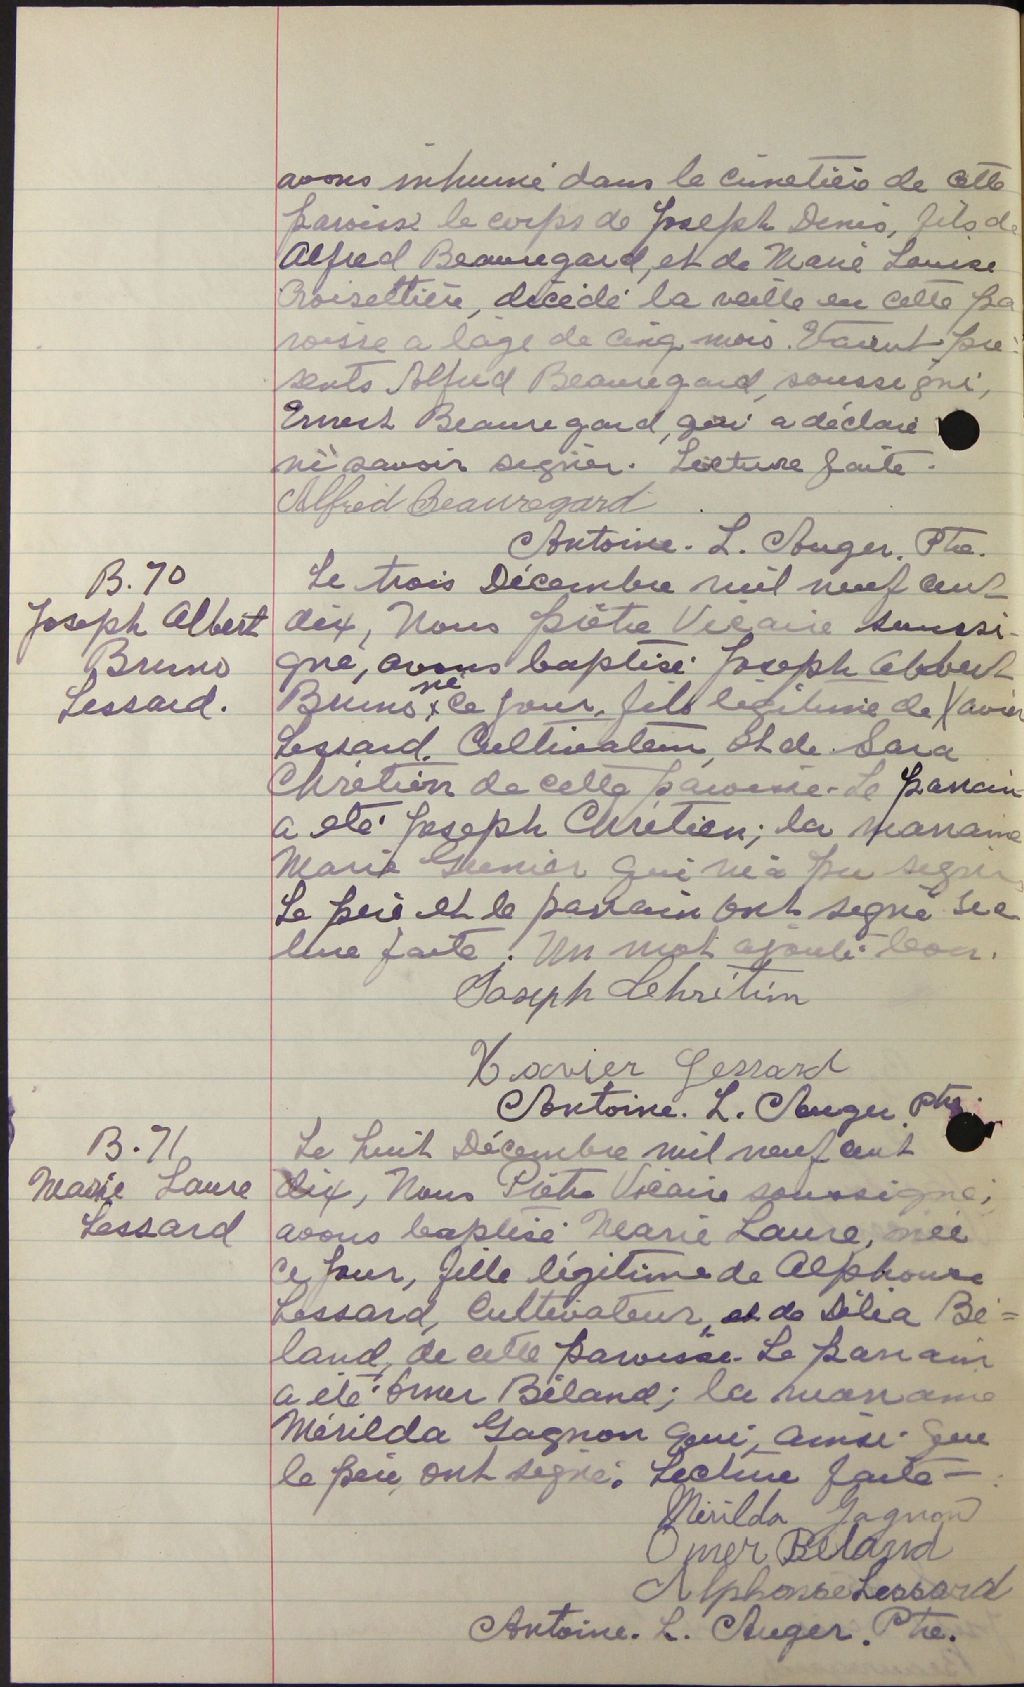 avons inhumé dans le cimetière de cette
paroisse le corps de Joseph Denis, fils de
Alfred Beauregard, et de Marie Louise
Croisettière, décédé la veille en cette pa
roisse a l'âge de cinq mois. Etaient pré-
sents Alfred Beauregard, soussigné,
Ernest Beauregard, qui a déclaré
ne savoir signer. Lecture faite.
Alfred Beauregard
Antoine. L. Auger. Ptre.
B. 70
Joseph Albert
Bruno
Lessard.
Le trois Décembre mil neuf cent
dix, Nous prêtre Vicaire soussi-
gné, avons baptisé Joseph Albert
né
Bruno x ce jour, fils légitime de Xavier
Lessard, Cultivateur, et de Sara
Chrétien de cette paroisse. Le parrain
a été Joseph Chrétien; la marraine
Marie Grenier qui n'a pu signer
Le père et le parrain ont signé Lec
ture faite. Un mot ajouté bon.
Joseph Lehrétien
Xavier Lessard
Antoine. L. Auger. Ptre.
B. 71
Marie Laure
Lessard
Le huit Décembre mil neuf cent
dix, Nous Prêtre Vicaire soussigné,
avons baptisé Marie Laure, née
ce jour, fille légitime de Alphonse
Lessard, Cultivateur, et de Délia Bé=
land, de cette paroisse. Le parrain
a été Omer Béland; la marraine
Mérilda Gagnon qui, ainsi que
le père, ont signé. Lecture faite —
Mérilda Gagnon
Omer Béland
Alphonse Lessard
Antoine. L. Auger. Ptre.